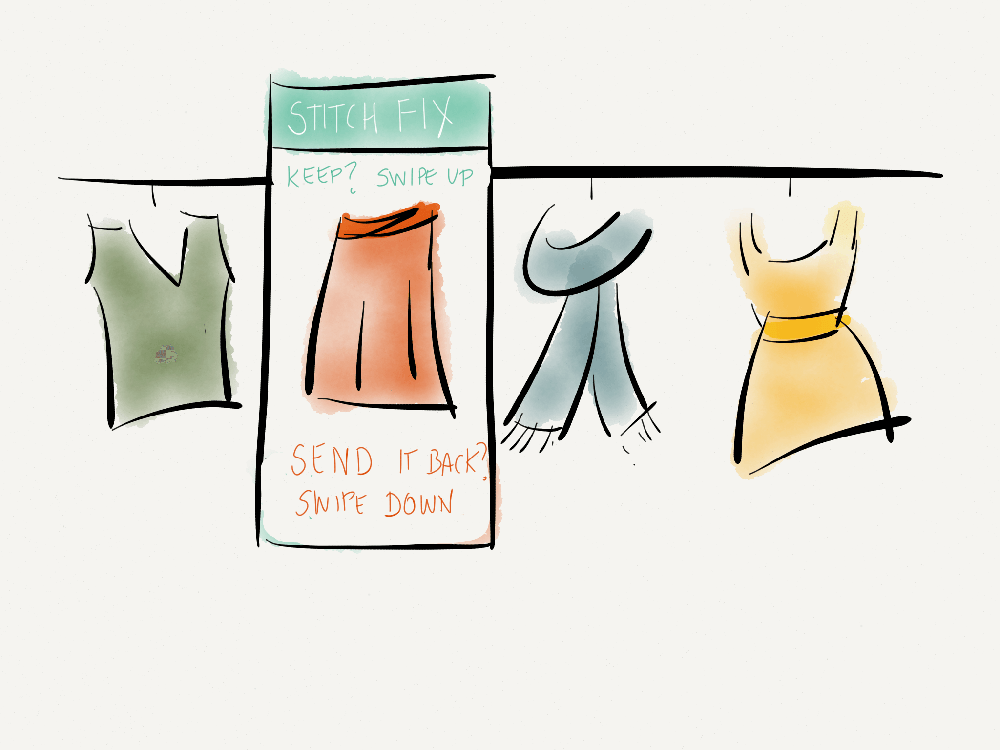 STITCH FIX
KEEP? SWIPE UP
SEND IT BACK?
SWIPE DOWN